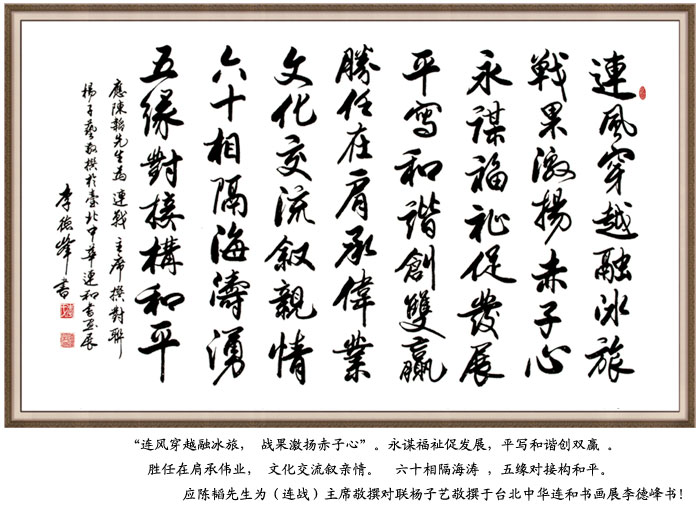 連風穿越融冰旅
戰果激揚赤子心
永謀福祉促發展
平寫和諧創雙贏
勝任在肩承偉業
文化交流叙親情
六十相隔海濤湧
五緣對接構和平
應陳韜先生為連戰主席撰對聯
楊子藝敬撰於臺北中華連和書画展
李德峰書
“连风穿越融冰旅， 战果激扬赤子心”。永谋福祉促发展，平写和谐创双赢 。
胜任在肩承伟业， 文化交流叙亲情。 六十相隔海涛 ，五缘对接构和平。
应陈韬先生为（连战）主席敬撰对联杨子艺敬撰于台北中华连和书画展李德峰书！